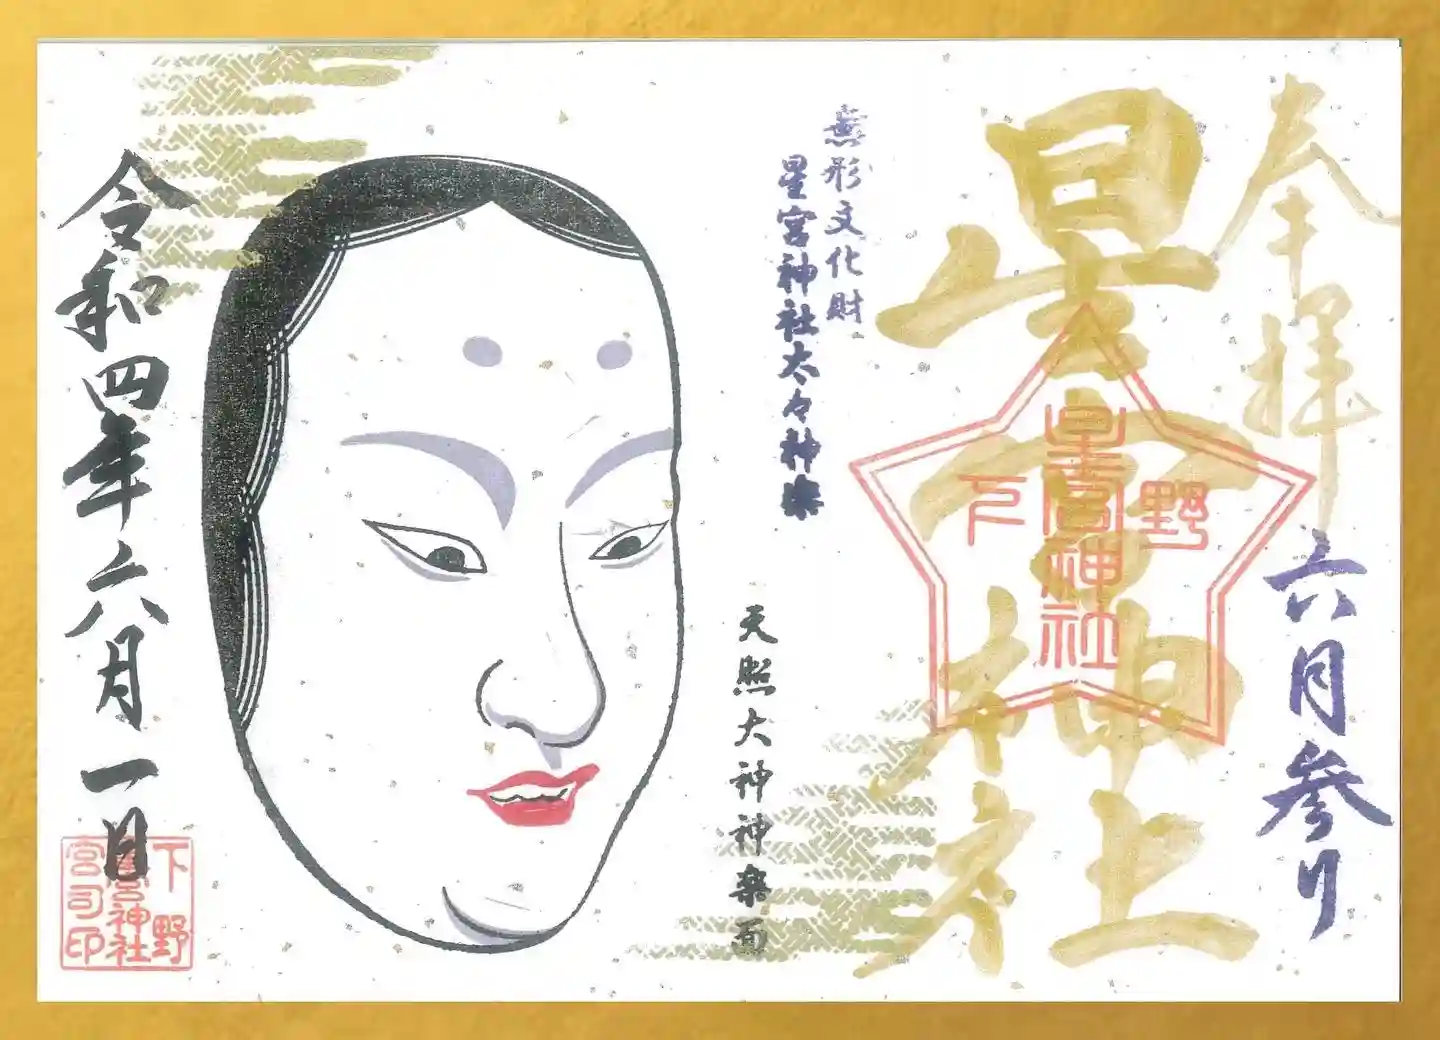 奉拝
六月参り
星宮神社
野
星宮神社
下
無形文化財
星宮神社太々神楽
天照大神神楽面
令和四年六月一日
下野
星宮神社
宮司印